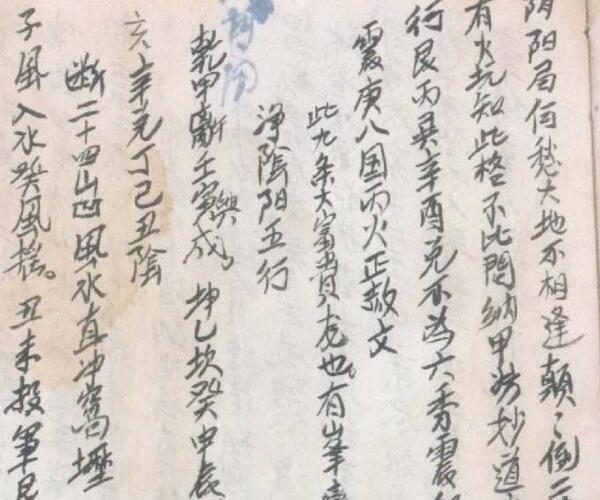 阴阳局何愁大地不相逢顛々倒二
有火坑知此格不此間納甲妙道
行艮丙巽辛酉兌不為六秀震
震庚八国丙火正赦文
此九条大富貴老也。有峯
浄陰阳五行
乾甲離壬寅與戌。坤乙坎癸申辰
亥辛兌丁己丑陰
断二十四山凹風水直冲窩塟
子風入水癸風搖。丑未投軍艮